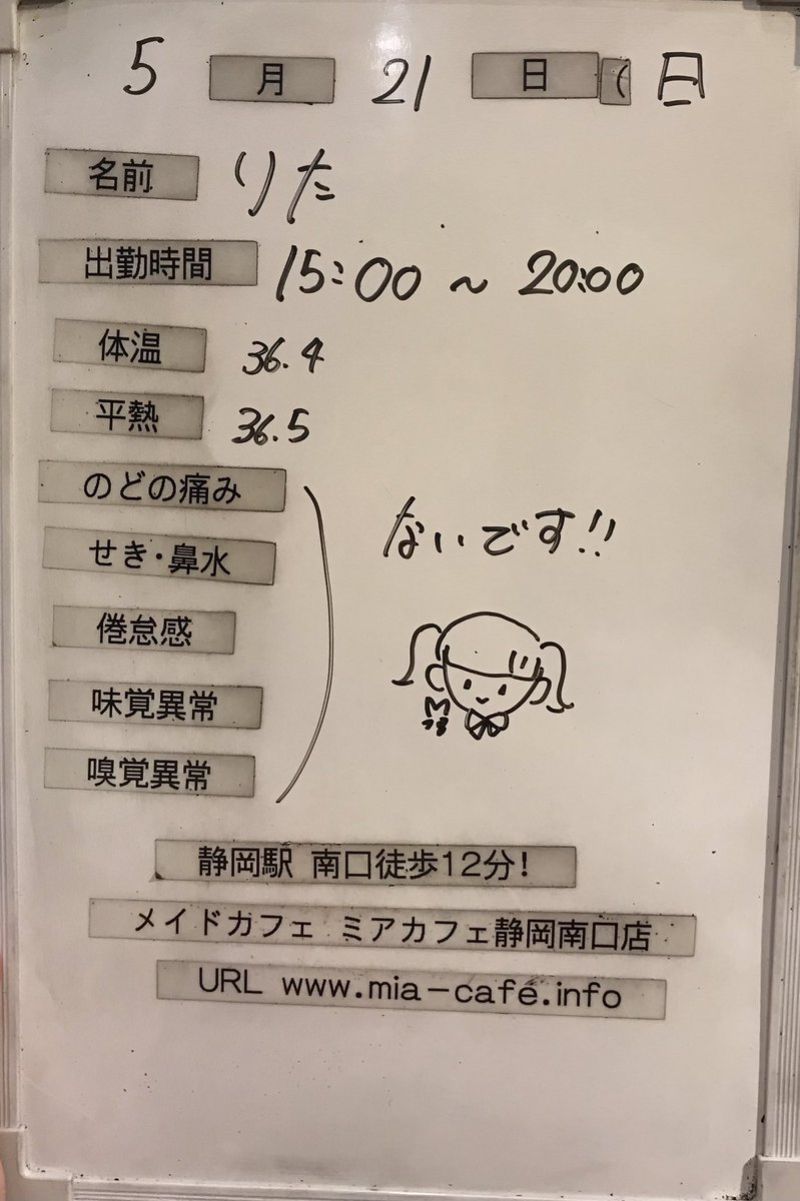 5月21日(日
名前 りた
出勤時間 15:00 ~ 20:00
体温 36.4
平熱 36.5
のどの痛み
せき・鼻水
ないです!!
倦怠感
味覚異常
嗅覚異常
静岡駅 南口徒歩12分!
メイドカフェ ミアカフェ静岡南口店
URL www.mia-cafe.info